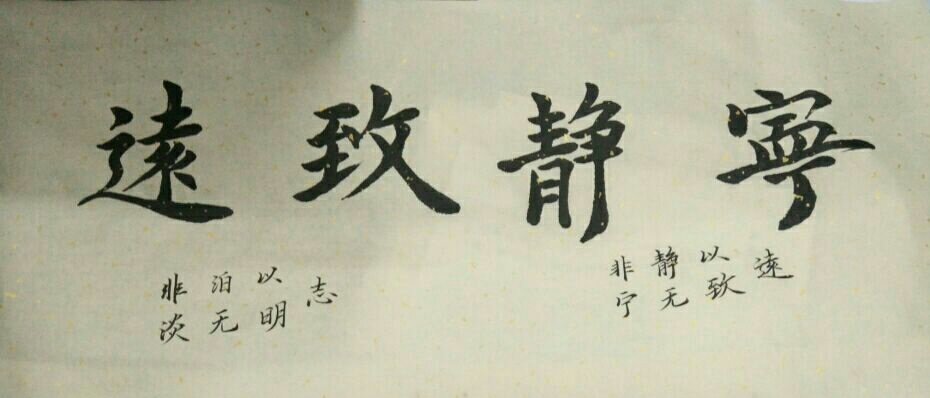 寧静致遠
非淡
泊无
以明
志
非宁
静无
以致
遠